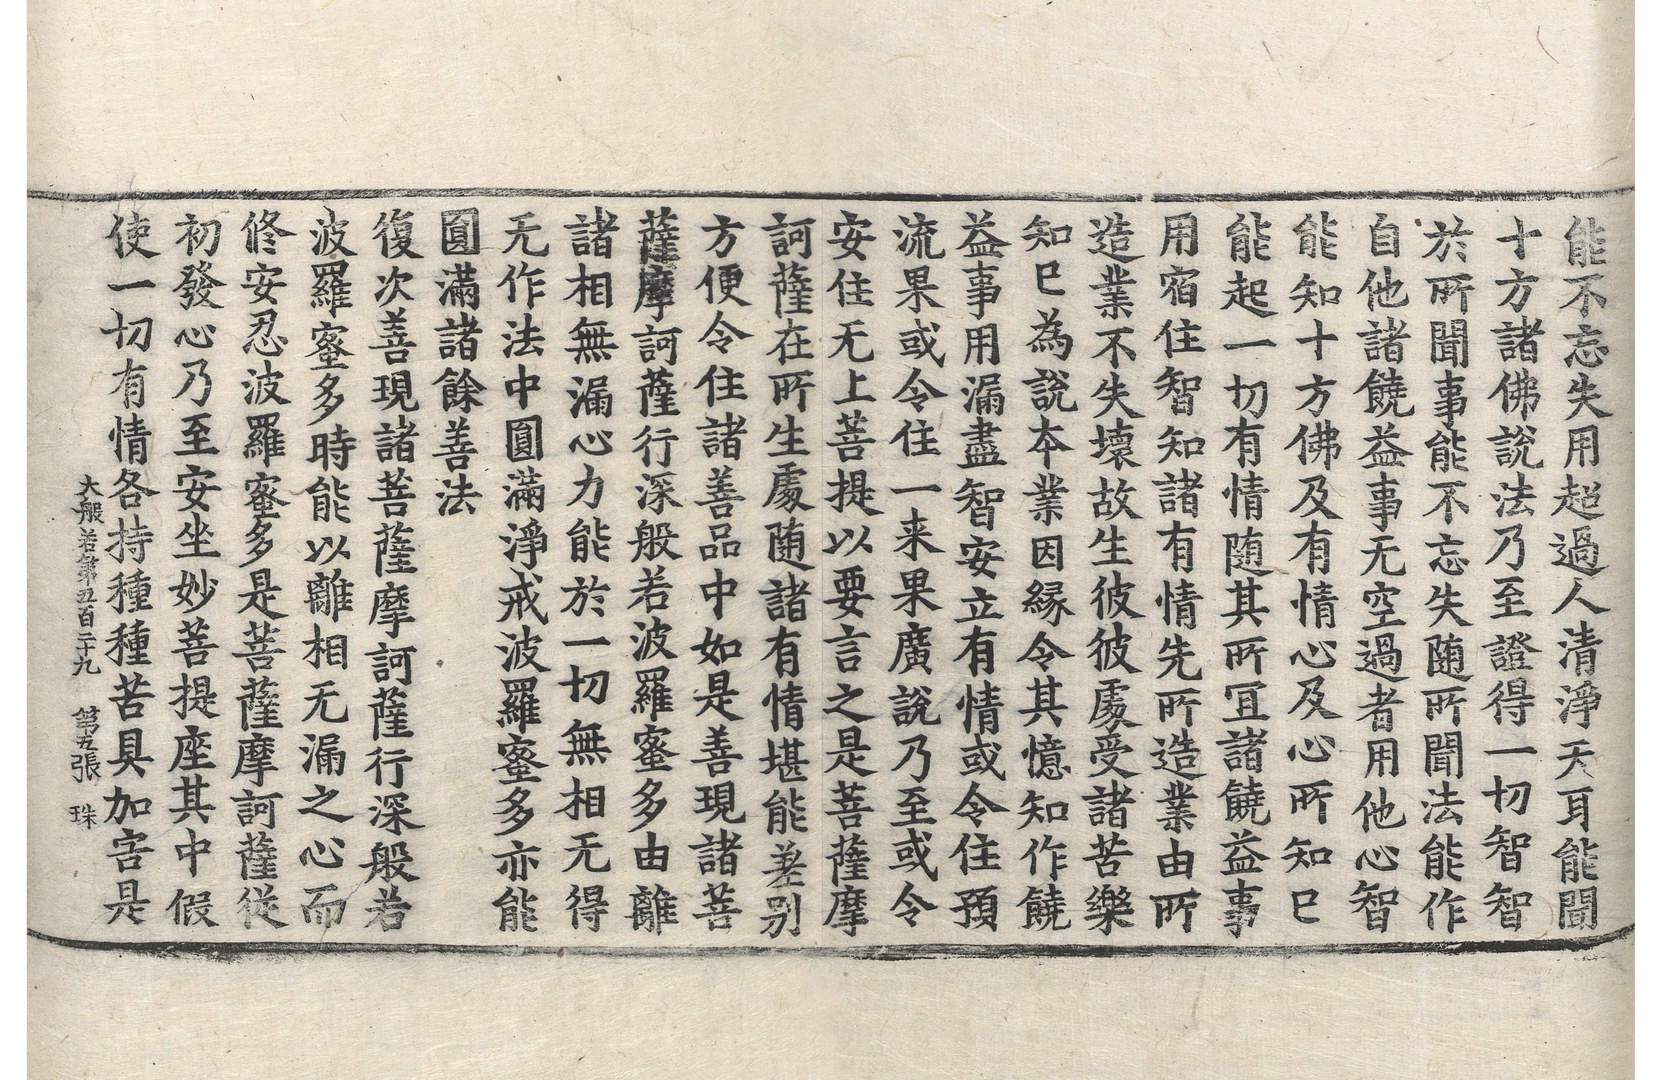 能不忘失用超過人清淨天耳能聞
十方諸佛說法乃至證得一切智智
於所聞事能不忘失随所聞法能作
自他諸饒益事无空過者用他心智
能知十方佛及有情心及心所知已
能起一切有情随其所冝諸饒益事
用宿住智知諸有情先所造業由所
造業不失壞故生彼彼處受諸苦樂
知已為說本業因緣令其憶知作饒
益事用漏盡智安立有情或令住預
流果或令住一来果廣說乃至或令
安住无上菩提以要言之是菩薩摩
訶薩在所生處随諸有情堪能差別
方便令住諸善品中如是善現諸菩
薩摩訶薩行深般若波羅蜜多由離
諸相無漏心力能於一切無相无得
无作法中圓滿淨戒波羅蜜多亦能
圓滿諸餘善法
復次善現諸菩薩摩訶薩行深般若
波羅蜜多時能以離相无漏之心而
修安忍波羅蜜多是菩薩摩訶薩從
初發心乃至安坐妙菩提座其中假
使一切有情各持種種苦具加害是
大般若第五百二十九 第五張 珠